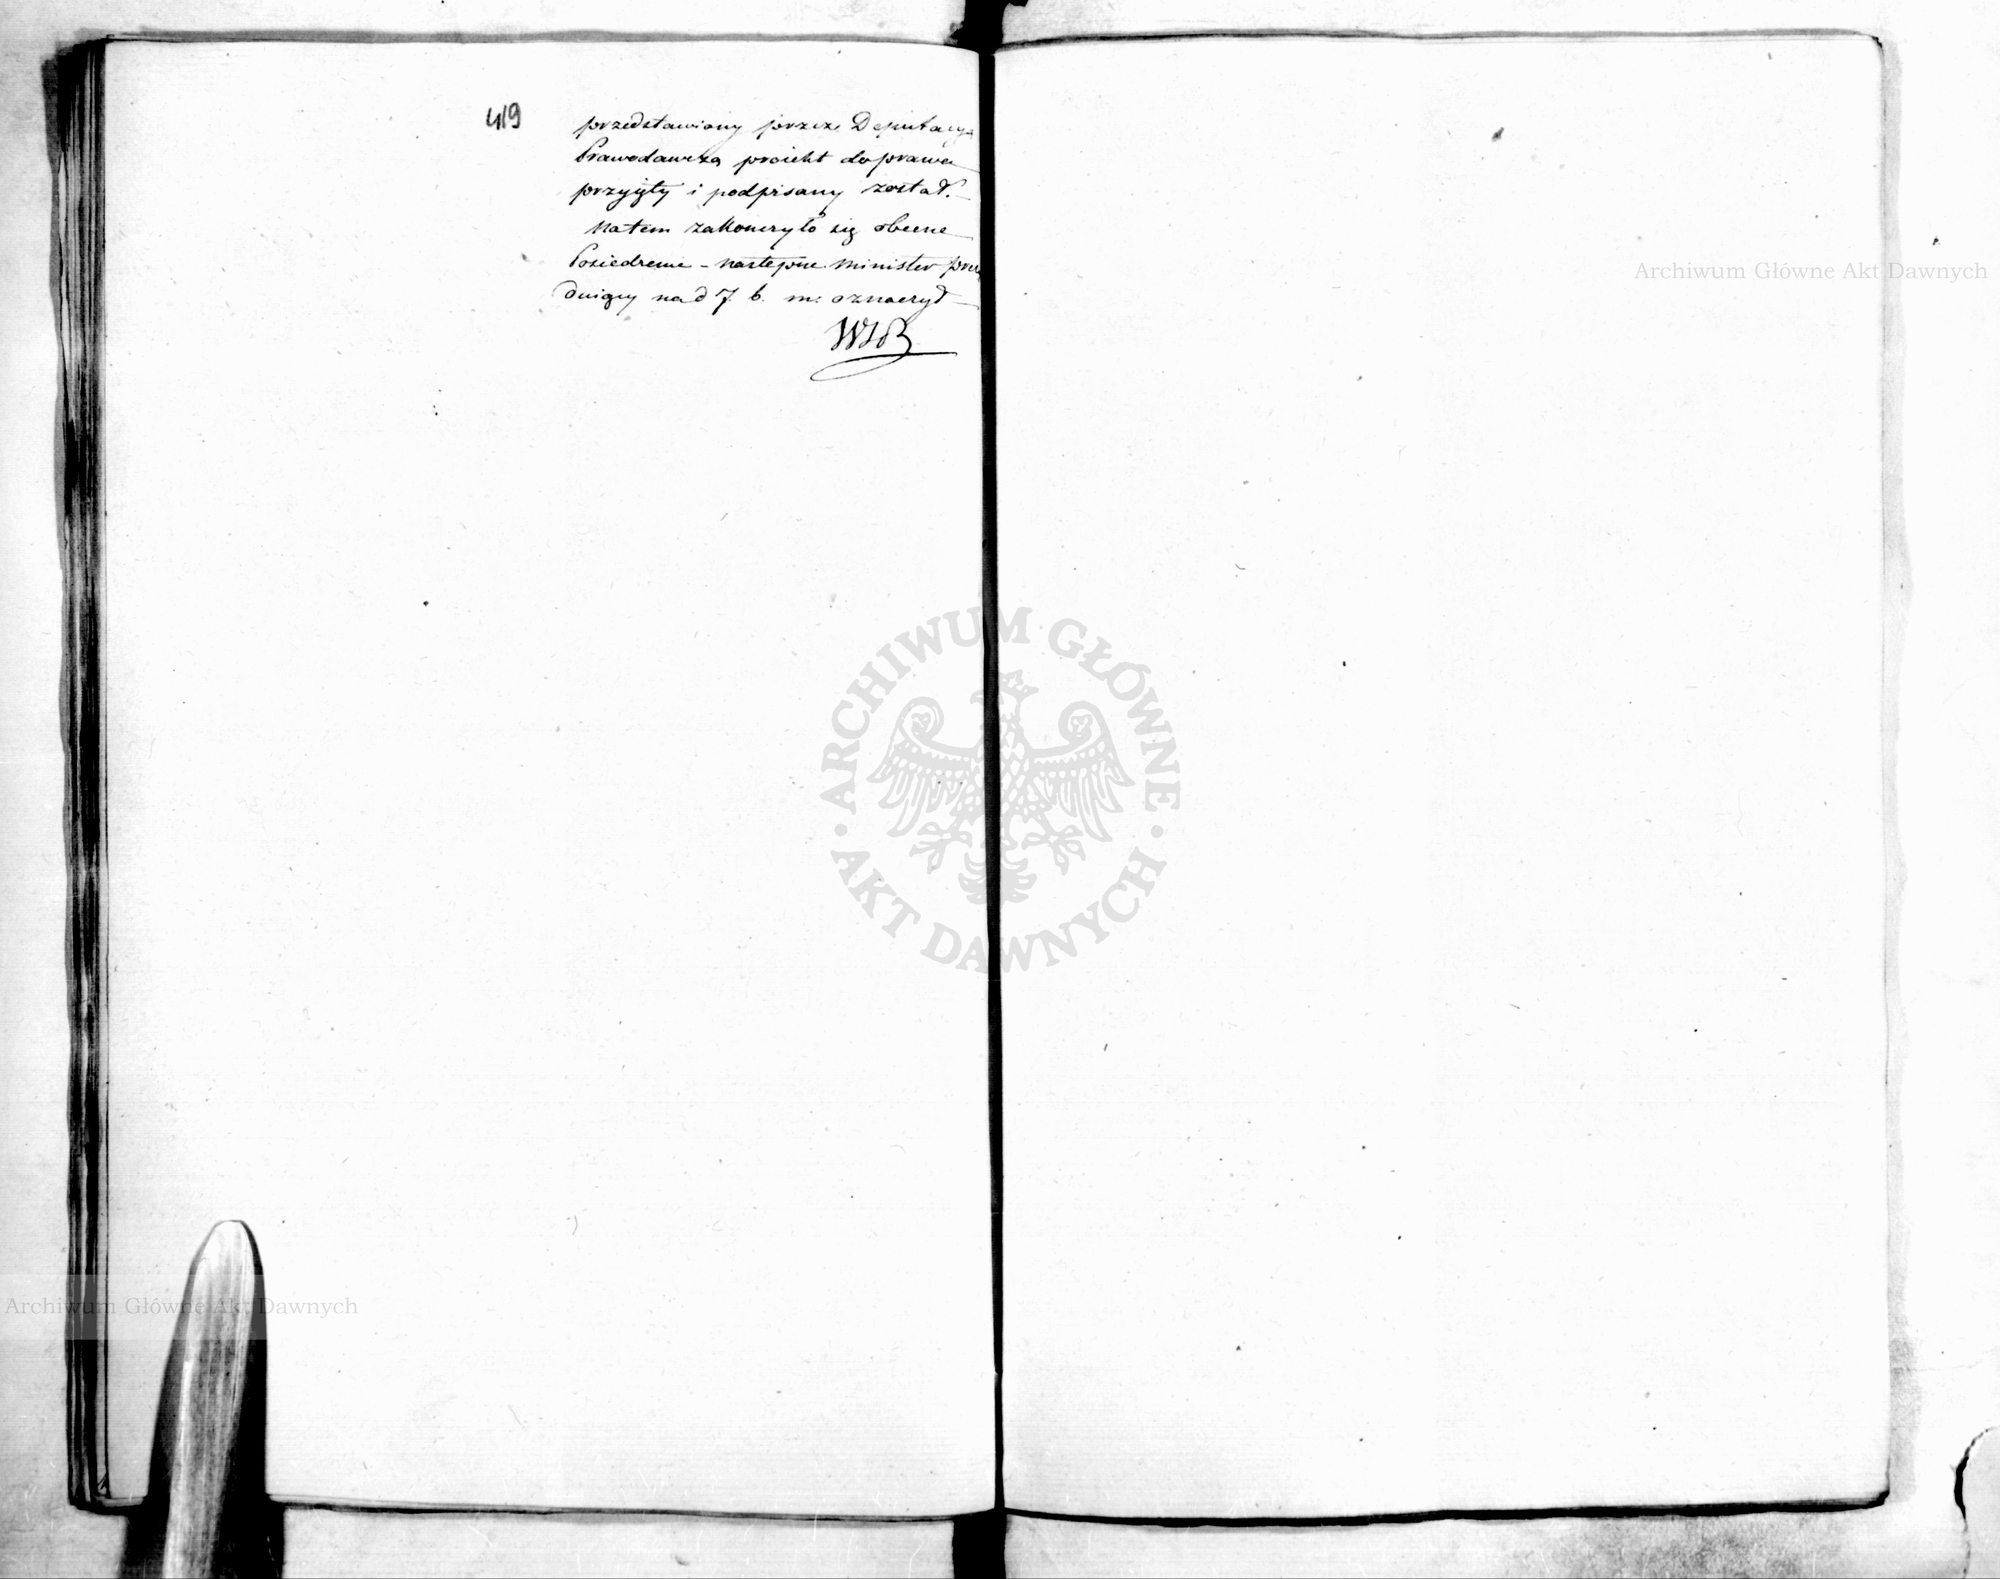 419
przedstawiony przez Deputacyą
Prawodawczą proiekt do prawa
przyięty i podpisany został.
Na tem zakonczyło się obecne
Posiedzenie – następne Minister prze
na d 7. b. m: oznaczył
Archiwum Główne Akt Dawnych
ARCHIWUM GŁÓWNE AKT DAWNYCH
Archiwum Główne Akt Dawnych